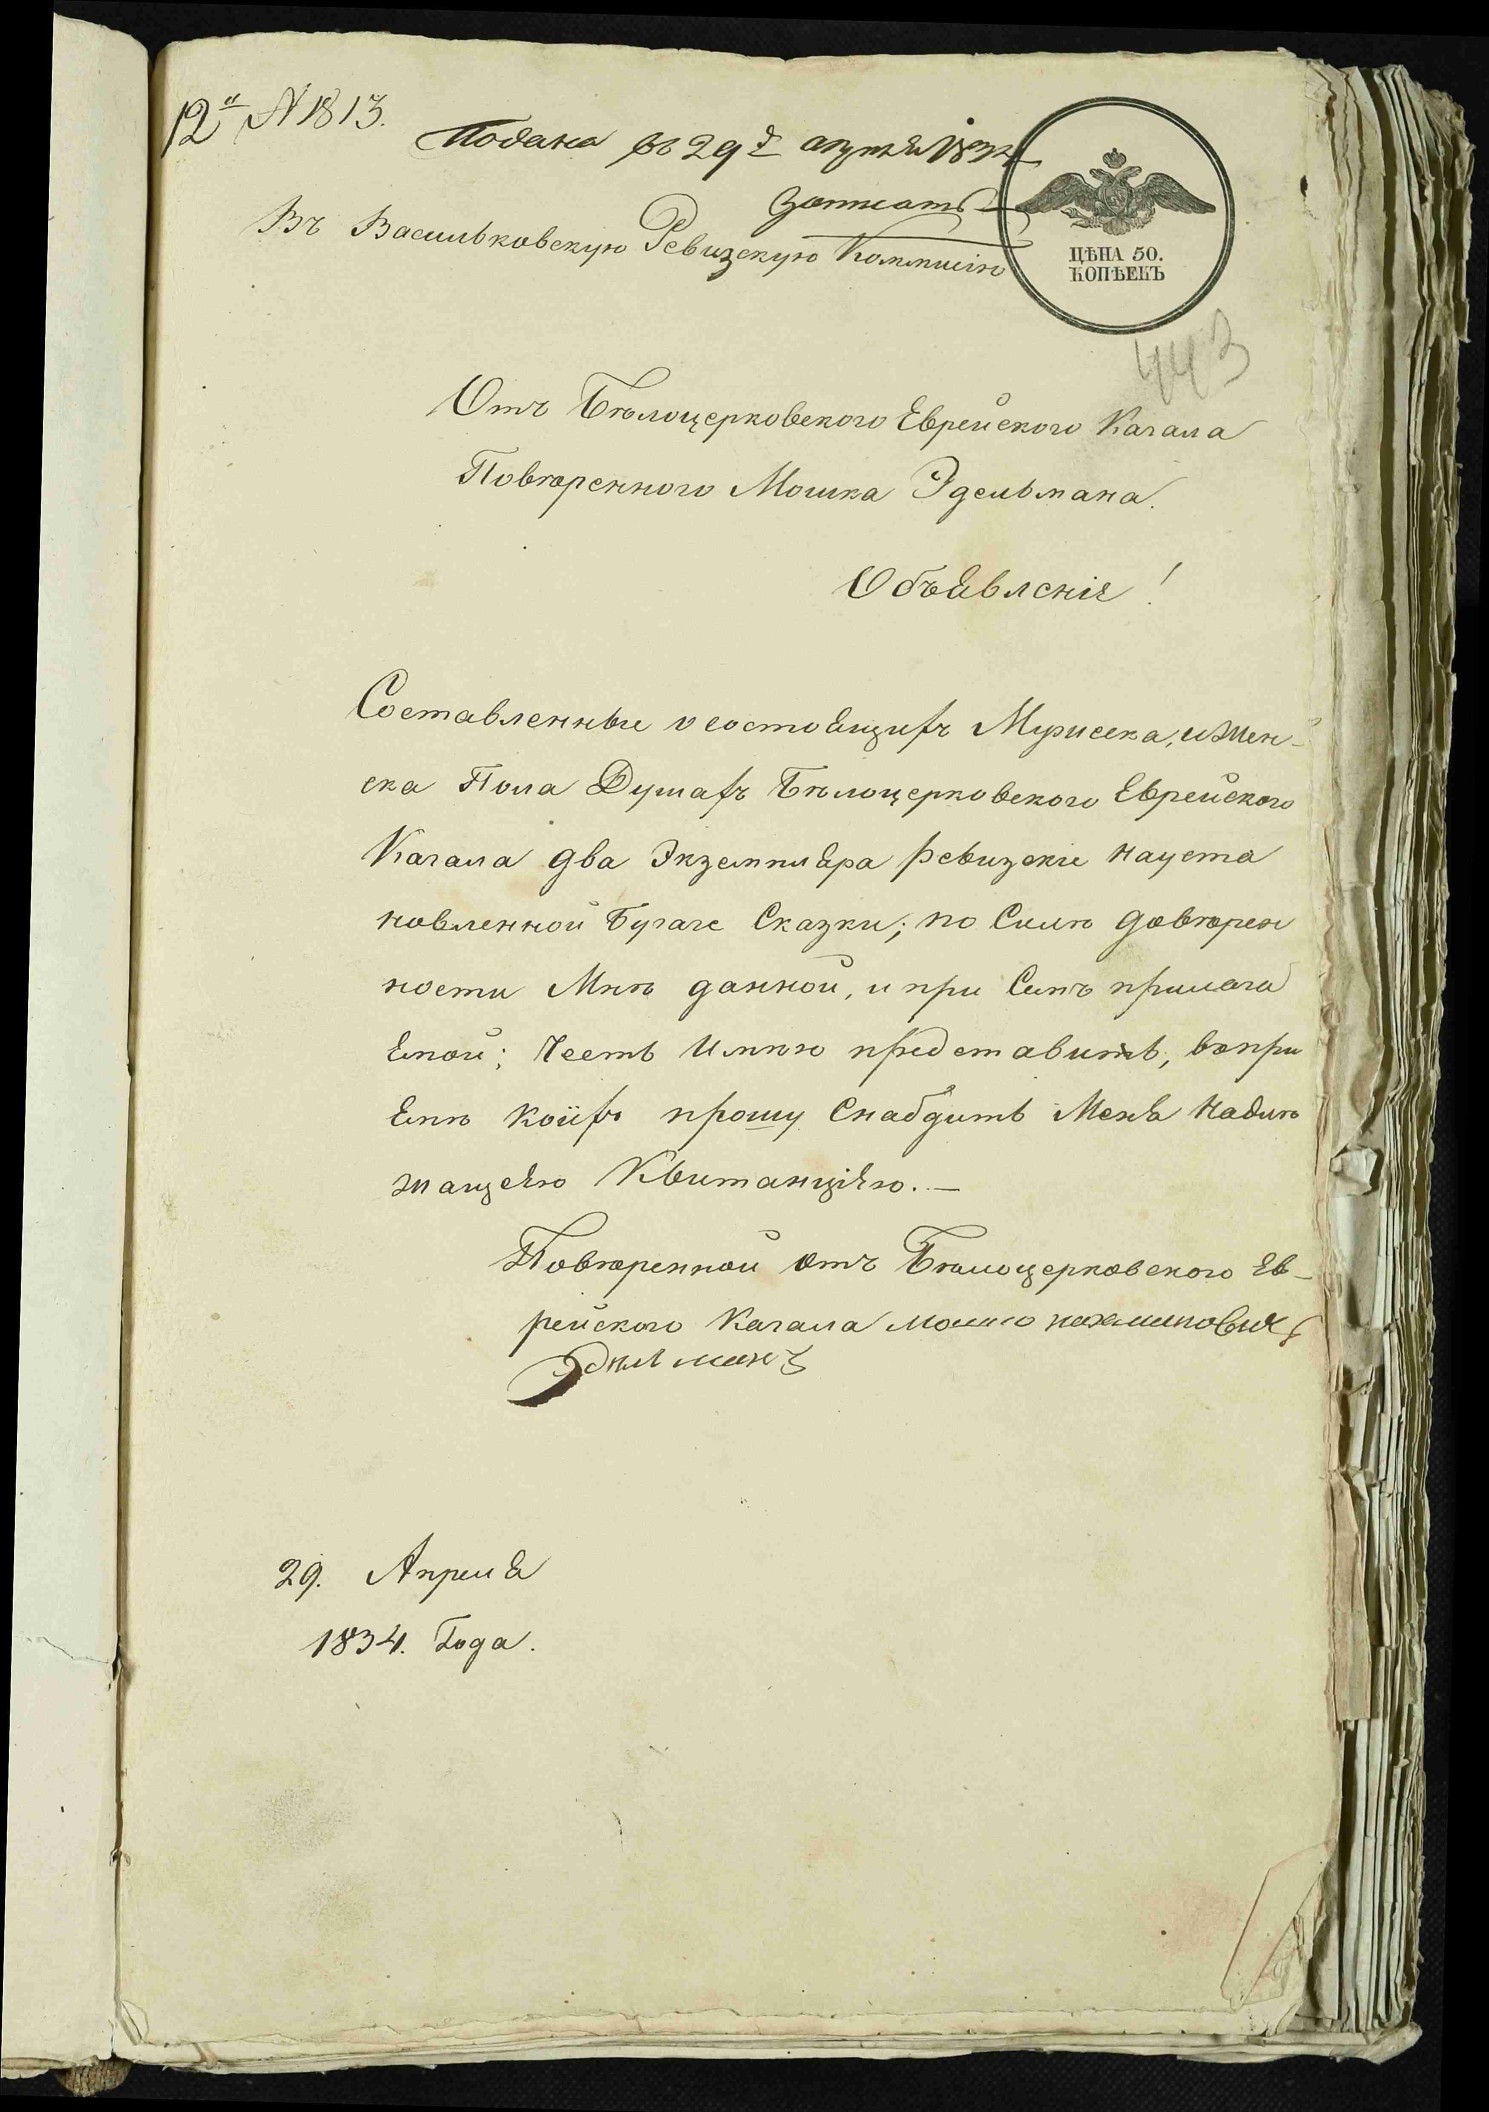 12" № 1813.
Подана въ 29 д апреля 1834
Записать
Въ Васильковскую Ревизскую Коммисію
ЦѢНА 50.
КОПѢЕКЪ
443
Отъ Бѣлоцерковского Еврейского Кагала
Повѣренного Мошка Эдельмана.
Объявленіе!
Составленные о состоящихъ Мужеска, и Жен-
ска Пола Душахъ Бѣлоцерковского Еврейского
Кагала два Экземпляра ревизскіе на уста
новленной Бугаге Сказки; по Силѣ довѣрен
ности Мнѣ данной, и при Семъ прилага
емой; Честь Имѣю представить, в при
емѣ коихъ прошу Снабдить Меня Надлѣ
жащею Квитанціею. —
Повѣренной отъ Бѣлоцерковского Ев-
рейского Кагала мошко
Эделманъ
29. Апреля
1834. Года.